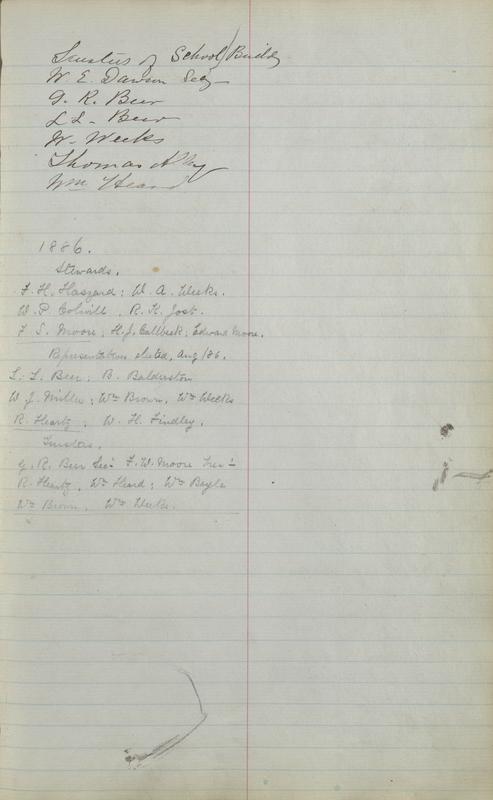 Trustees of School Build
W. E. Dawson Secy
G. R. Beer
L. L. Beer
W. Weeks
Thomas Alley
Wm Heard
1886.
Stewards.
F. H. Haszard; W. A. Weeks.
W. P. Colwill, R. K. Jost.
F S. Moore; H. J. Callbeck; Edward Moore.
Representatives elected, Aug/86.
L. L. Beer; B. Balderston
W. J. Miller; Wm Brown, Wm Weeks
R. Heartz; W. H. Findley.
Trustees.
G. R. Beer Sec: F. W. Moore Tres:
R. Heartz, Wm Heard; Wm Boyle
Wm Brown, Wm Weeks.